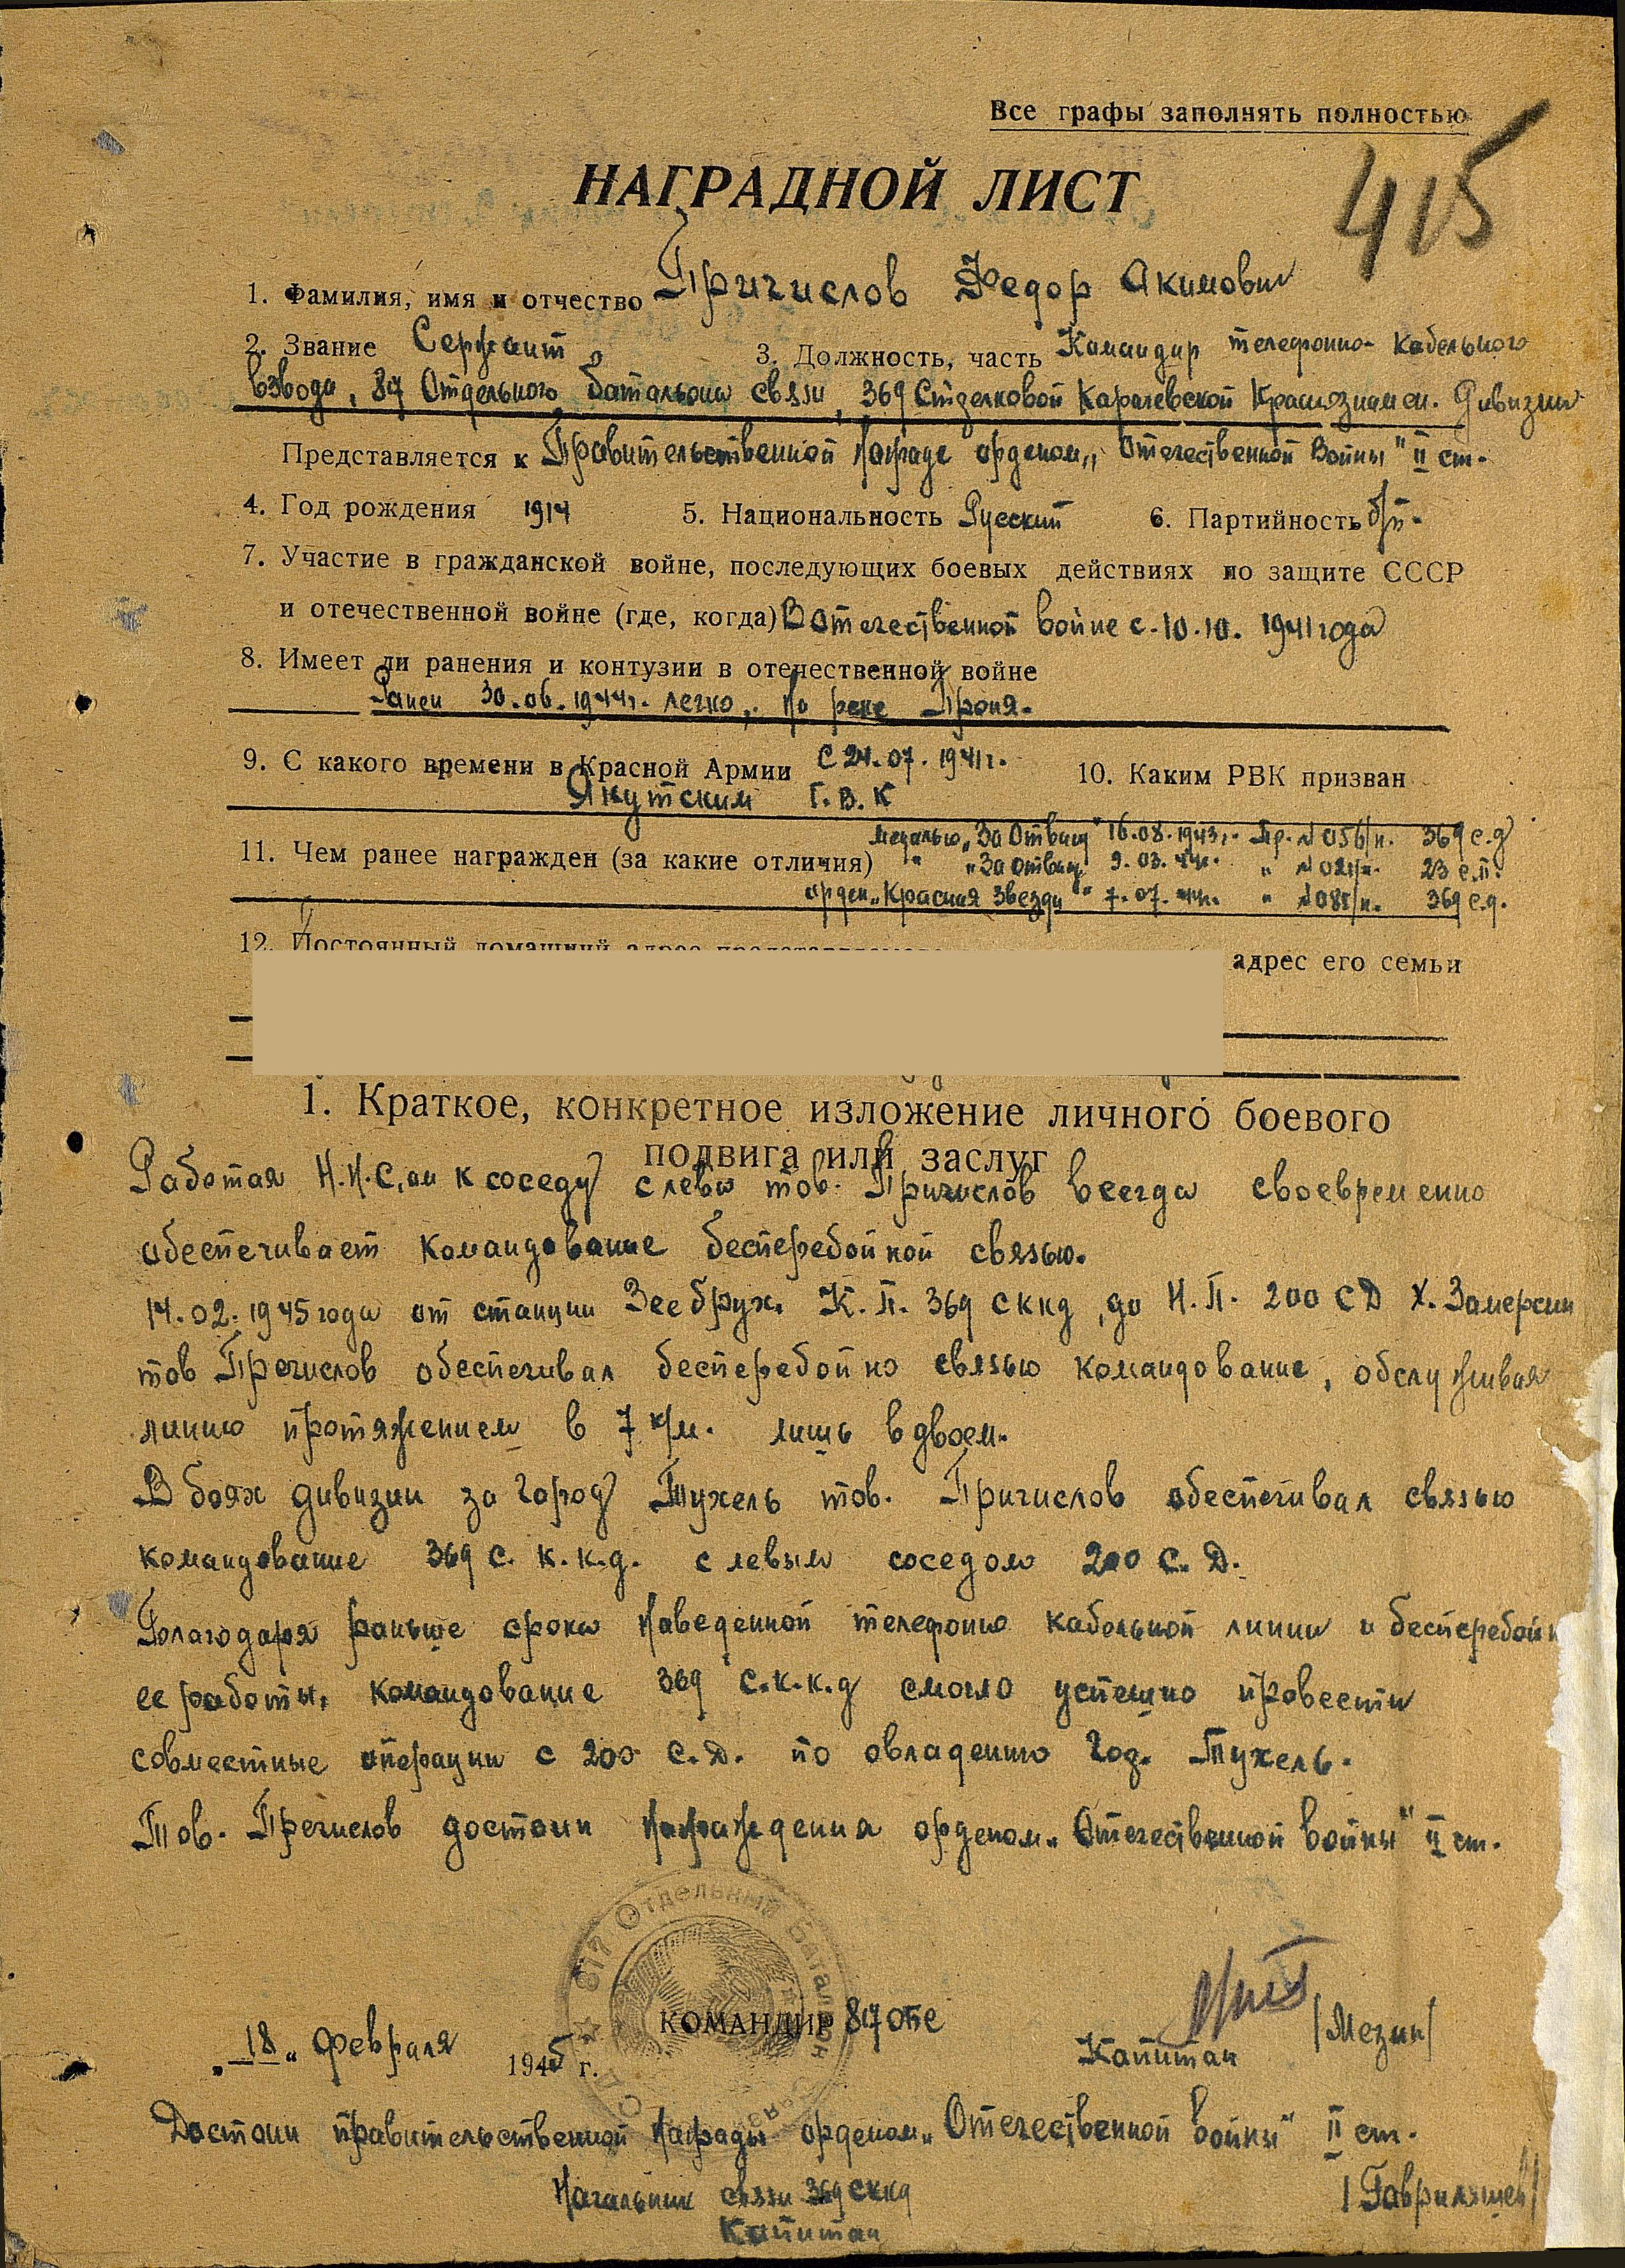 Все графы заполнять полностью
415
НАГРАДНОЙ ЛИСТ
1. Фамилия, имя и отчество Причислов Федор Акимович
2. Звание Сержант 3. Должность, часть Командир телефонно-кабельного
взвода, 817 Отдельного батальона связи, 369 Стрелковой Карачевской Краснознамен. Дивизии
Представляется к Правительственной награде орденом „Отечественной Войны" II ст.
4. Год рождения 1914 5. Национальность Русский 6. Партийность б/п.
7. Участие в гражданской войне, последующих боевых действиях по защите СССР
и отечественной войне (где, когда) В Отечественной войне с. 10.10. 1941 года
8. Имеет ли ранения и контузии в отечественной войне
Ранен 30.06.1944г. легко, на реке Проня.
9. С какого времени в Красной Армии С 24.07.1941г. 10. Каким РВК призван
Якутским Г.В.К
медалью „За Отвагу" 16.08.1943г. Пр. № 056/н. 369 с.д
11. Чем ранее награжден (за какие отличия) " „За Отвагу 9.03.44г. " № 021/н. 23 с.п.
орден „Красная Звезда" 7.07.44г. " № 085/н. 369 с.д.
12. Постоянный домашний адрес представляемого адрес его семьи
1. Краткое, конкретное изложение личного боевого
подвига или заслуг
Работая Н.Н.С,ом к соседу слева тов. Причислов всегда своевременно
обеспечивает командование бесперебойной связью.
14.02.1945 года от станции Зеебрух. К.П. 369 сккд, до Н.П. 200 СД Х. Замерсин
тов Пречислов обеспечивал бесперебойно связью командование, обслуживая
линию протяжением в 7 к/м. лишь вдвоем.
В боях дивизии за город Тухель тов. Причислов обеспечивал связью
командование 369 с. к.к.д. с левым соседом 200 С. Д.
Благодаря раньше срока наведенной телефоно кабельной линии и бесперебойн
ее работы, командование 369 с.к.к.д смогло успешно провести
совместные операции с 200 С.Д. по овладению гор. Тухель.
Тов. Пречислов достоин награждения орденом „Отечественной войны" II ст.
817 Отдельный Батальон Связи
КОМАНДИР 817 ОБС
„18" февраля 1945 г. Капитан /Мезин/
Достоин правительственной награды орденом „Отечественной войны" II ст.
Начальник связи 369 сккд
Капитан /Гаврилящев/